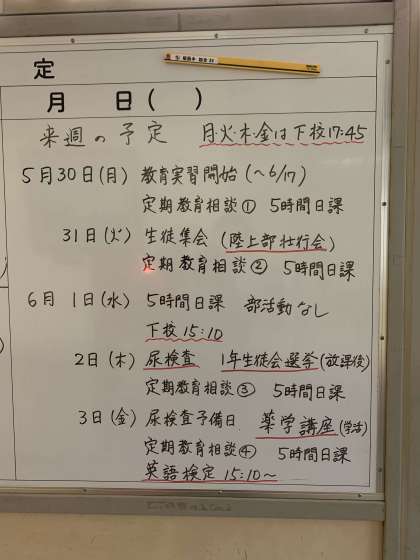 定
月 日( )
来週の予定 月・火・木・金は下校17:45
5月30日(月) 教育実習開始(~6/17)
定期教育相談① 5時間日課
31日(火) 生徒集会(陸上部壮行会)
定期教育相談② 5時間日課
6月 1日(水) 5時間日課 部活動なし
下校15:10
2日(木) 尿検査 1年生徒会選挙(放課後)
定期教育相談③ 5時間日課
3日(金) 尿検査予備日 薬学講座(学活)
定期教育相談④ 5時間日課
英語検定 15:10~